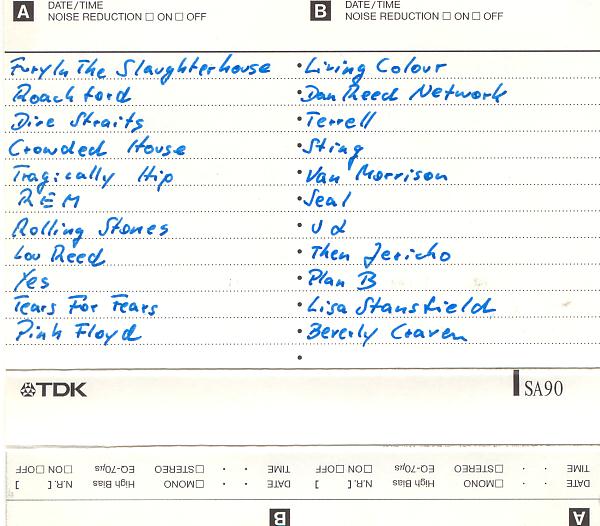 A DATE/TIME
NOISE REDUCTION □ ON □ OFF
B DATE/TIME
NOISE REDUCTION □ ON □ OFF
Fury In The Slaughterhouse
Roachford
Dire Straits
Crowded House
Tragically Hip
REM
Rolling Stones
Lou Reed
Yes
Tears For Fears
Pink Floyd
• Living Colour
• Dan Reed Network
• Terrell
• Sting
• Van Morrison
• Seal
• U2
• Then Jericho
• Plan B
• Lisa Stansfield
• Beverly Craven
•
TDK
SA90
A
DATE · · □ MONO High Bias N.R. [ ]
TIME · · □ STEREO EQ-70µs □ ON □ OFF
B
DATE · · □ MONO High Bias N.R. [ ]
TIME · · □ STEREO EQ-70µs □ ON □ OFF